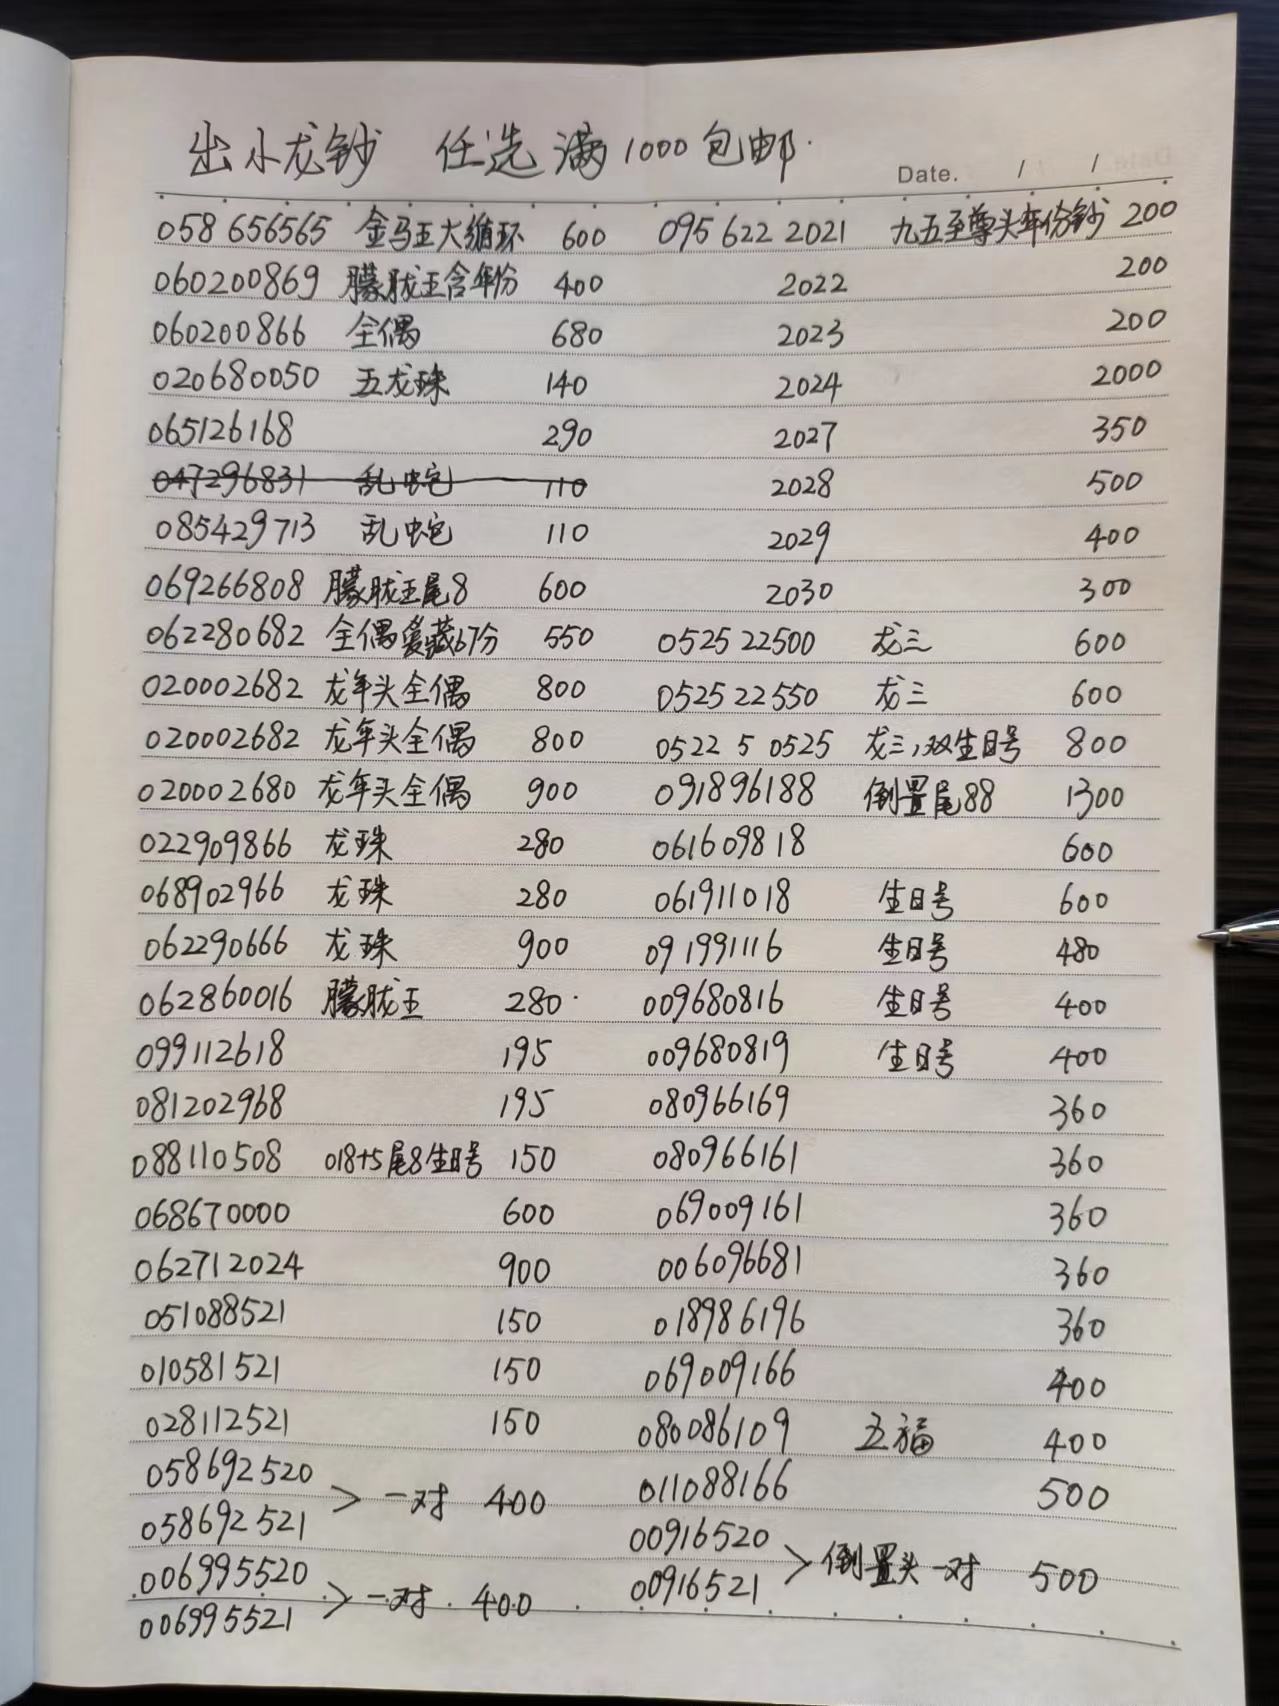 出小龙钞 任选 满1000包邮.
Date. / /
058 656565 金马王大循环 600
060200869 朦胧王含年份 400
060200866 全偶 680
020680050 五龙珠 140
065126168 290
047296831 乱蛇 110
085429713 乱蛇 110
069266808 朦胧王尾8 600
062280682 全偶爱藏67分 550
020002682 龙年头全偶 800
020002682 龙年头全偶 800
020002680 龙年头全偶 900
022909866 龙珠 280
068902966 龙珠 280
062290666 龙珠 900
062860016 朦胧王 280
099112618 195
081202968 195
088110508 018+5尾8生日号 150
068670000 600
062712024 900
051088521 150
010581521 150
028112521 150
058692520
058692521
> 一对 400
006995520
006995521
> 一对 400
095 622 2021 九五至尊头年份钞 200
2022 200
2023 200
2024 2000
2027 350
2028 500
2029 400
2030 300
0525 22500 龙三 600
0525 22550 龙三 600
0522 5 0525 龙三,双生日号 800
091896188 倒置尾88 1300
061609818 600
061911018 生日号 600
091991116 生日号 480
009680816 生日号 400
009680819 生日号 400
080966169 360
080966161 360
069009161 360
006096681 360
018986196 360
069009166 400
080086109 五福 400
011088166 500
00916520
00916521
> 倒置头一对 500